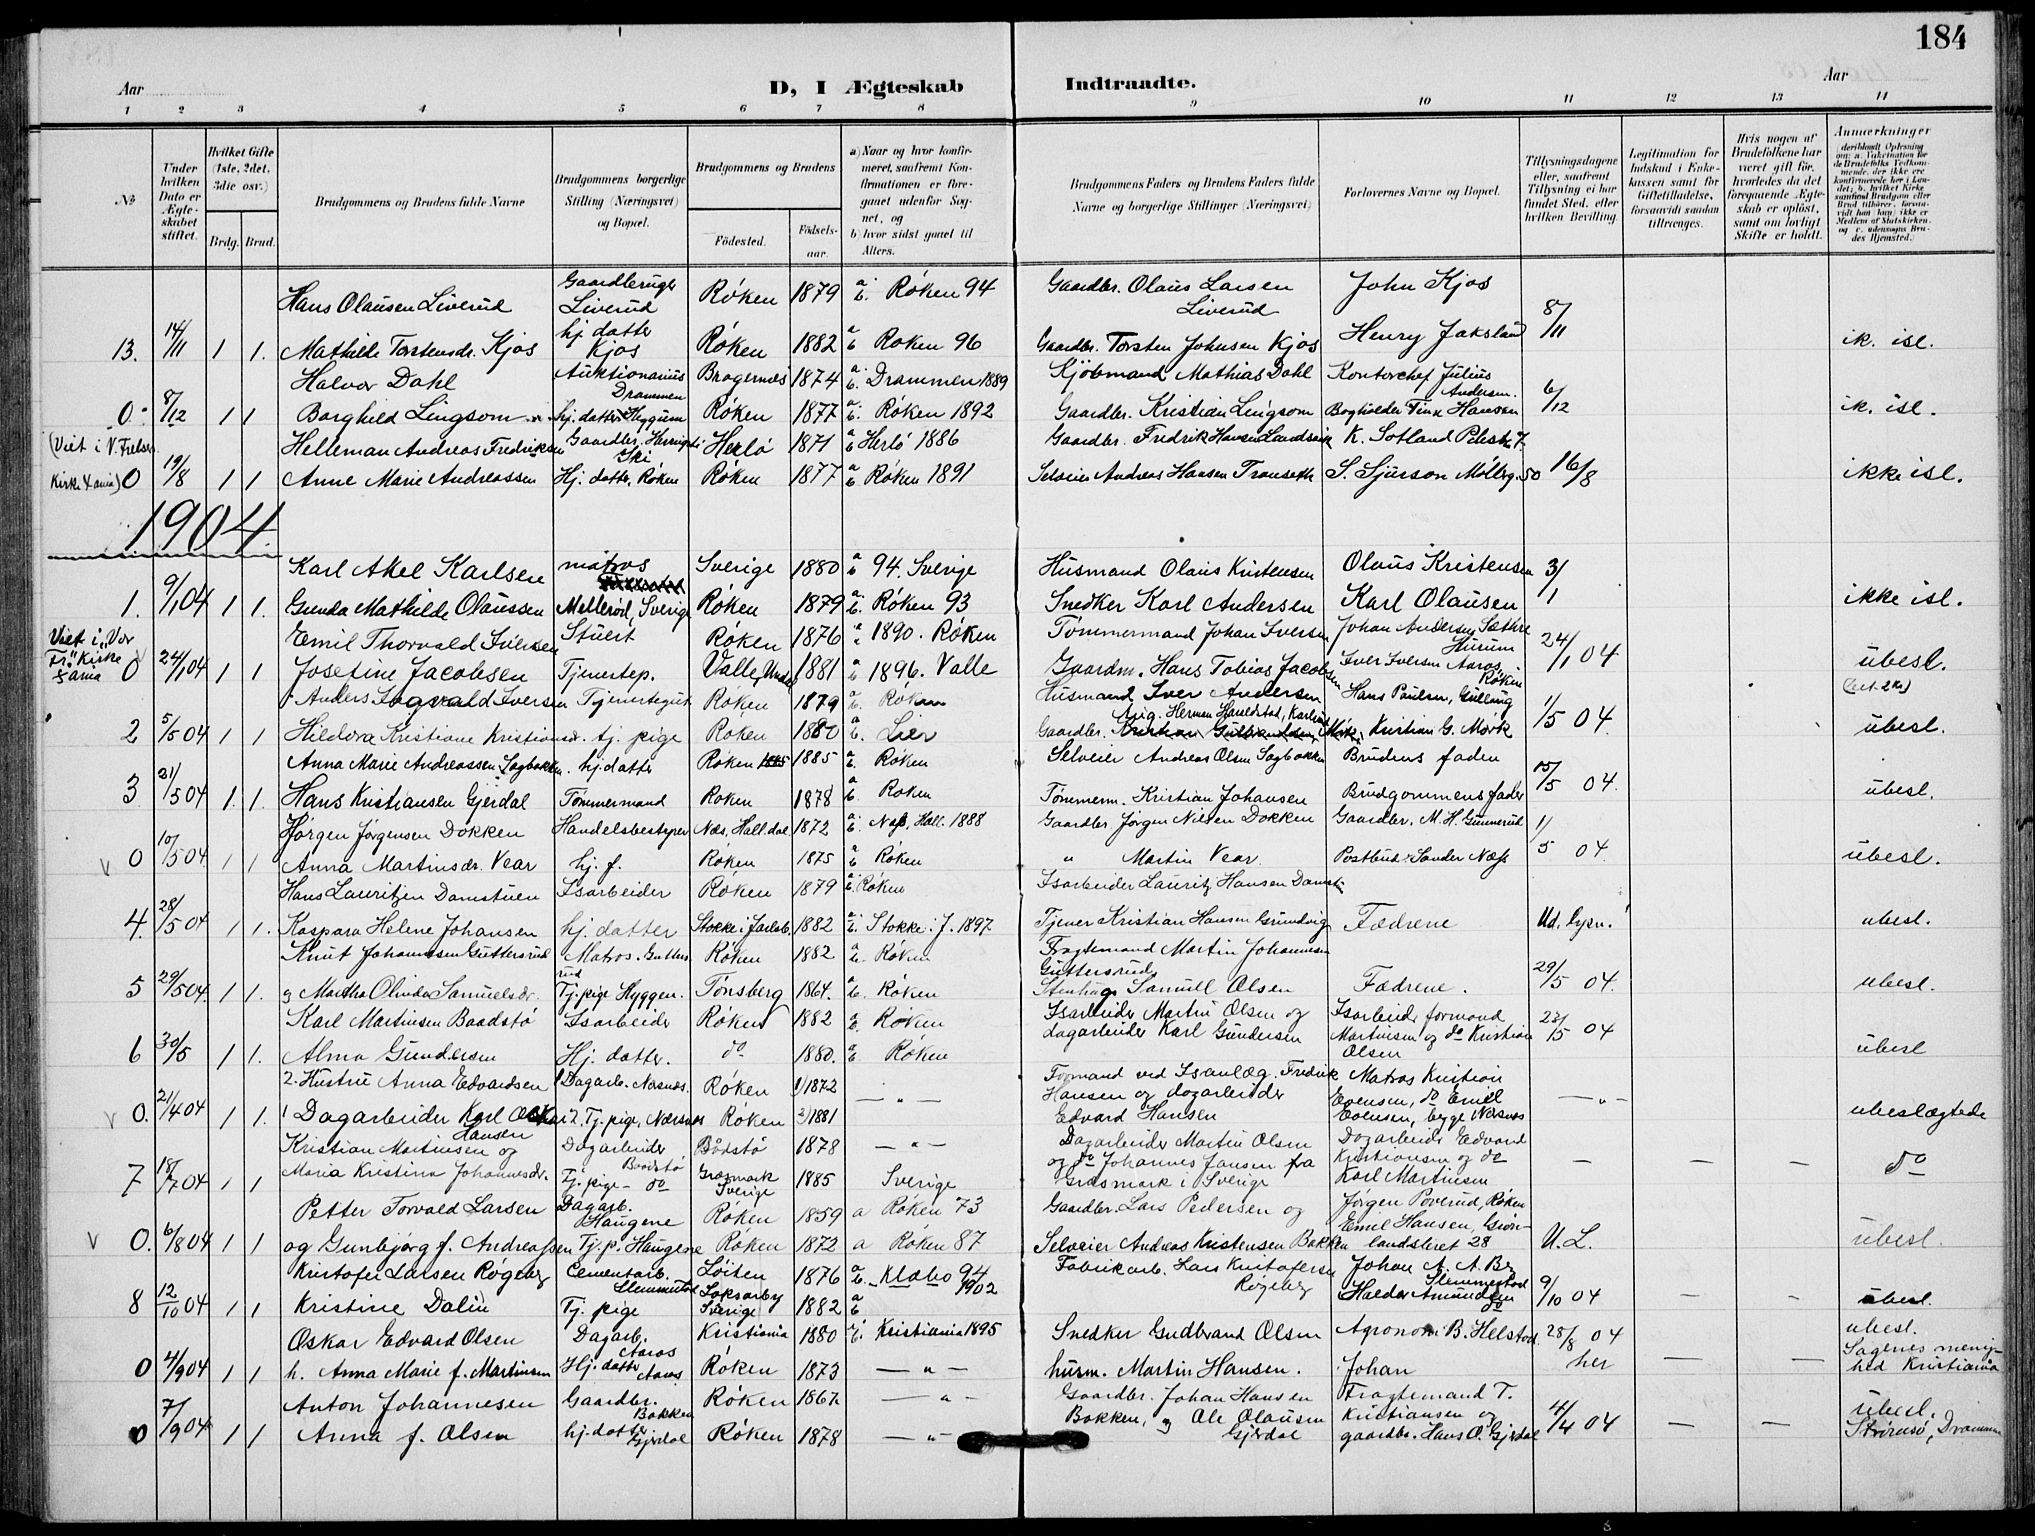 184
Aar
D, I Ægteskab Indtraadte.
Aar
1 2 3 4 5 6 7 8 9 10 11 12 13 14
№
Under hvilken Dato er Ægteskabet stiftet.
Hvilket Gifte (1ste, 2det, 3die osv.)
Brdg. Brud.
Brudgommens og Brudens fulde Navne
Brudgommens borgerlige Stilling (Næringsvei) og Bopæl.
Brudgommens og Brudens
Födested.
Födsels-aar.
a) Naar og hvor konfirmeret, saafremt Konfirmationen er foregaaet udenfor Sognet, og
b) hvor sidst gaaet til Alters.
Brudgommens Faders og Brudens Faders fulde Navne og borgerlige Stillinger (Næringsvei)
Forlovernes Navne og Bopæl.
Tillysningsdagene eller, saafremt Tillysning ei har fundet Sted, efter hvilken Bevilling.
Legitimation for Indskud i Enkekassen samt for Giftetilladelse, forsaavidt saadan tiltrænges.
Hvis nogen af Brudefolkene har været gift før, hvorledes da det foregaaende Ægteskab er oplöst, samt om lovligt Skifte er holdt.
Anmærkninger
Hans Olausen Liverud Gaardbruger Liverud Røken 1879 a b. Røken 94 Gaardbr. Olaus Larsen Liverud John Kjos
13. 14/11 1 1. Mathilde Torstensdr. Kjos hj. datter Kjos Røken 1882 a b Røken 96 Gaardbr. Torsten Johnsen Kjos Henry Jaksland 8/11 ik. isl.
Halvor Dahl Auktionarius Drammen Bragernæs 1874 a b. Drammen 1889 Kjöbmand Mathias Dahl Kontorchef Julius Andersen.
0. 8/12 1 1 Borghild Lingsom hj. datter Hyggen Røken 1877 a b. Røken 1892 Gaardbr. Kristian Lingsom Bogholder Finn Hansen 6/12 ik. isl.
(Viet i V. Frelsers Kirke Xania) Helleman Andreas Fredriksen Gaardbr. Ski Herlö 1871 a b Herlö 1886 Gaardbr. Fredrik Hansen K. Sotland
0 19/8 1 1 Anne Marie Andreassen Hj. datter, Røken Røken 1877 a b Røken 1891 Selveier Andreas Hansen S. Sjurson Mölleg. 50 16/8 ikke isl.
1904.
Karl Akel Karlsen matros Sverige 1880 a b 94. Sverige Husmand Olaus Kristensen Olaus Kristensen
1. 9/1 04 1 1. Gunda Mathilde Olaussen Mellerød, Sverige Røken 1879 a b. Røken 93 Snedker Karl Andersen Karl Olausen 3/1 ikke isl.
Viet i "Vor Fr." Kirke Xania Emil Thorvald Iversen Stuert Røken 1876 a 1890. Røken Tömmermand Johan Iversen Johan Andersen Sæthre Hurum
0 24/1 04 1 1 Josefine Jacobsen Tjenestep. Valle, 1881 a b 1896. Valle Gaardm. Hans Tobias Jacobsen Iver Iversen Aaros Røken 24/1 04 ubesl. (bet. 2 Kr)
Anders Sagvald Iversen Tjenestegut Røken 1879 a b. Røken Husmand Iver Andersen Hans Paulsen, Gullaug
2 5/5 04 1 1 Hildora Kristiane Kristiansdr. tj. pige Røken 1880 a b. Lier Gaardbr. Kristian G. Mørk 1/5 04. ubesl.
Anna Marie Andreassen Sagbakken. hj. datter Røken 1885 a b. Røken Selveier Andreas Olsen Sagbakken Brudens fader
3 21/5 04 1. 1. Hans Kristiansen Gjerdal Tömmermand Røken 1878 a b. Røken Tömmerm. Kristian Johansen Brudgommens fader 15/5 04. ubesl.
Jörgen Jörgensen Dokken Handelsbestyrer Næs, Hall.dal 1872 a b. Næs, Hall. 1888 Gaardbr. Jørgen Nilsen Dokken Gaardbr. M. H. Gunnerud
0 10/5 04 1 1 Anna Martinsdr. Vear hj. f. Røken 1875 a b Røken " Martin Vear. Postbud Sander Næss 1/5 04. ubesl.
Hans Lauritzen Damstuen Isarbeider Røken 1879 a b. Røken Isarbeider Lauritz Hansen Damst.
4. 28/5 04 1 1. Kaspara Helene Johansen hj. datter Stokke i Jarlsb. 1882 a b. Stokke i J. 1897 Tjener Kristian Hansen Grundvig Fædrene Ud. lysn. ubesl.
Knut Johannesen Guttersrud Matros. Guttersrud Røken 1882 a b. Røken Fragtemand Martin Johannesen Guttersrud
5 29/5 04 1 1. og Martha Olinder Samuelsdr. Tj. pige Hyggen. Tönsberg 1864. a b. Røken Stenhug. Samuel Olsen Fædrene. 29/5 04. ubesl.
Karl Martinsen Baadstø Isarbeider Røken 1882 a b. Røken Isarbeider Martin Olsen og Isarbeider formand
6 30/5 1 1. Alma Gundersen Hj. datter. do 1880. a b Røken dagarbeider Karl Gundersen Martinsen og do Kristian Olsen 23/5 04 ubesl
2. Hustru Anna Edvardsen 1 Dagarb. Nærsnæs. Røken 1) 1872 Formand ved Isanlæg. Fredrik Matros Kristian
0. 21/4 04 1 1. 1 Dagarbeider Karl Oskar Hansen 2. Tj. pige, Nærsnæs Røken 2) 1881 — " — Hansen og dagarbeider Edvard Hansen Evensen, do Emil Evensen, begge Nærsnæs — " — ubeslægtede
Kristian Martinsen og Dagarbeider Baadstø Bådstø 1878 — " — Dagarbeider Martin Olsen Dagarbeider Edvard
7 18/7 04 1 1 Maria Kristina Johannesdr. Tj. pige - do Gräsmark Sverige 1885 Sverige og do Johannes Jansen fra Gräsmark i Sverige Kristiansen og do Karl Martinsen — — — do
Petter Torvald Larsen Dagarb. Haugene Røken 1859 a Røken 73 Gaardbr. Lars Pedersen og Jörgen Poverud, Røken
0. 6/8 04 1 1 og Gunbjørg f. Andreassen Tj. p. Haugene Røken 1872 a Røken 87 Selveier Andreas Kristensen Bakken Emil Hansen, Grönlandsleret 28 U. L. ubesl.
Kristofer Larsen Røgeberg Cementarb. Slemmestad Löiten 1876 a b. Klabo 94 1902 Fabrikarb. Lars Kristofersen Røgeberg Johan A. A. Slemmestad
8 12/10 04 1 1 Kristine Dalin Tj. pige Sverige 1882 a b Haldor Amundsen do 9/10 04 — - ubesl.
Oskar Edvard Olsen Dagarb. Aaros Kristiania 1880 Kristiania 1895 Snedker Gudbrand Olsen Agronom B. Helstad 28/8 04 ubesl.
0 4/9 04 1 1 h. Anna Marie f. Martinsen Hj. datter Aaros. Røken 1873 — " — husm. Martin Hansen. Johan her — — Sagenes menighed Kristiania
Anton Johannesen Gaardbr. Bakken Røken 1867. — " - Gaardbr. Johan Hansen Fragtemand T.
0 7/9 04 1 1 Anna f. Olsen hj. datter Gjerdal Røken 1878 — " — Bakken, og Ole Olausen Gjerdal Kristiansen og gaardbr. Hans O. Gjerdal 4/4 04 — — ubesl. Strömsö, Drammen